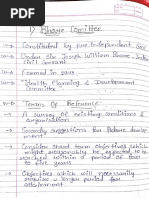 1) Bhore Comittee
→ Constituted by pre Independent
→ Under Sir Joseph William Bhore, Indian civil servant
→ Formed in
→ "Health Planning & Development Committee"
→ Terms Of Reference
→ A survey of existing conditions & organisations
→ Secondly suggestions for future development
→ Consider short term objectives which might reasonably be expected to be reached within a period of four five years
→ Objectives which will necessarily require a longer period for attainment